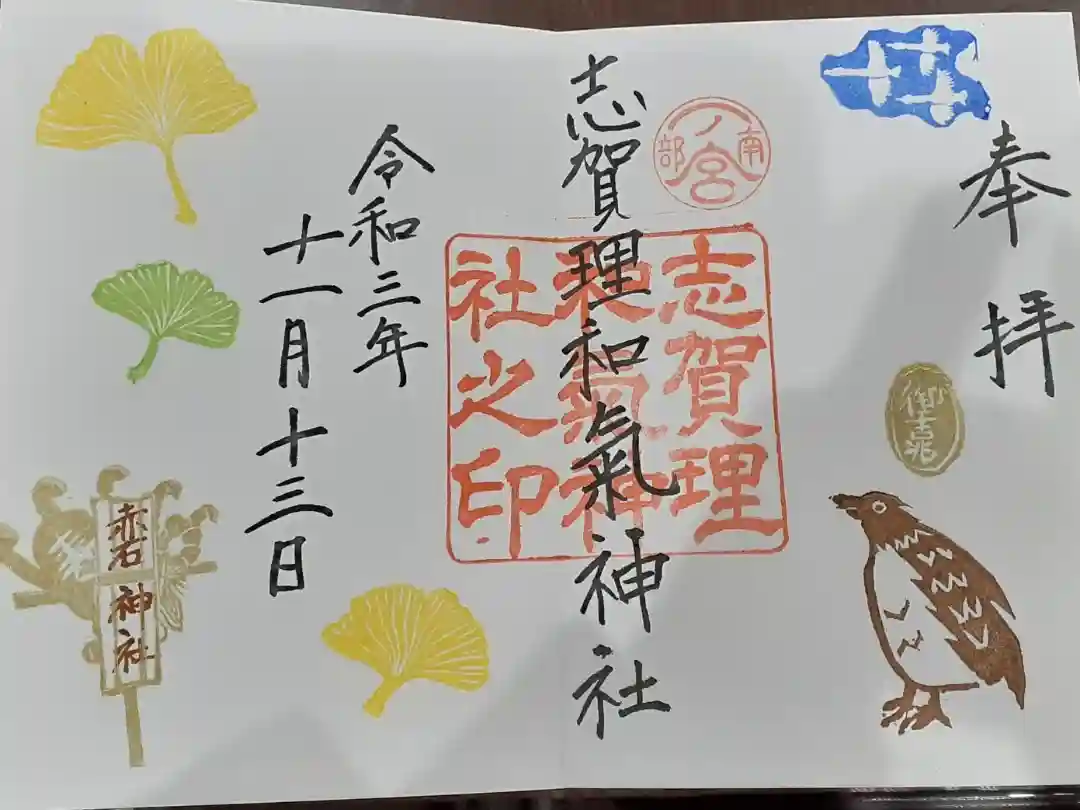 奉拝
御吉兆
南部
一ノ宮
志賀理和氣神社
志賀理
和氣神
社之印
令和三年
十一月十三日
赤石神社